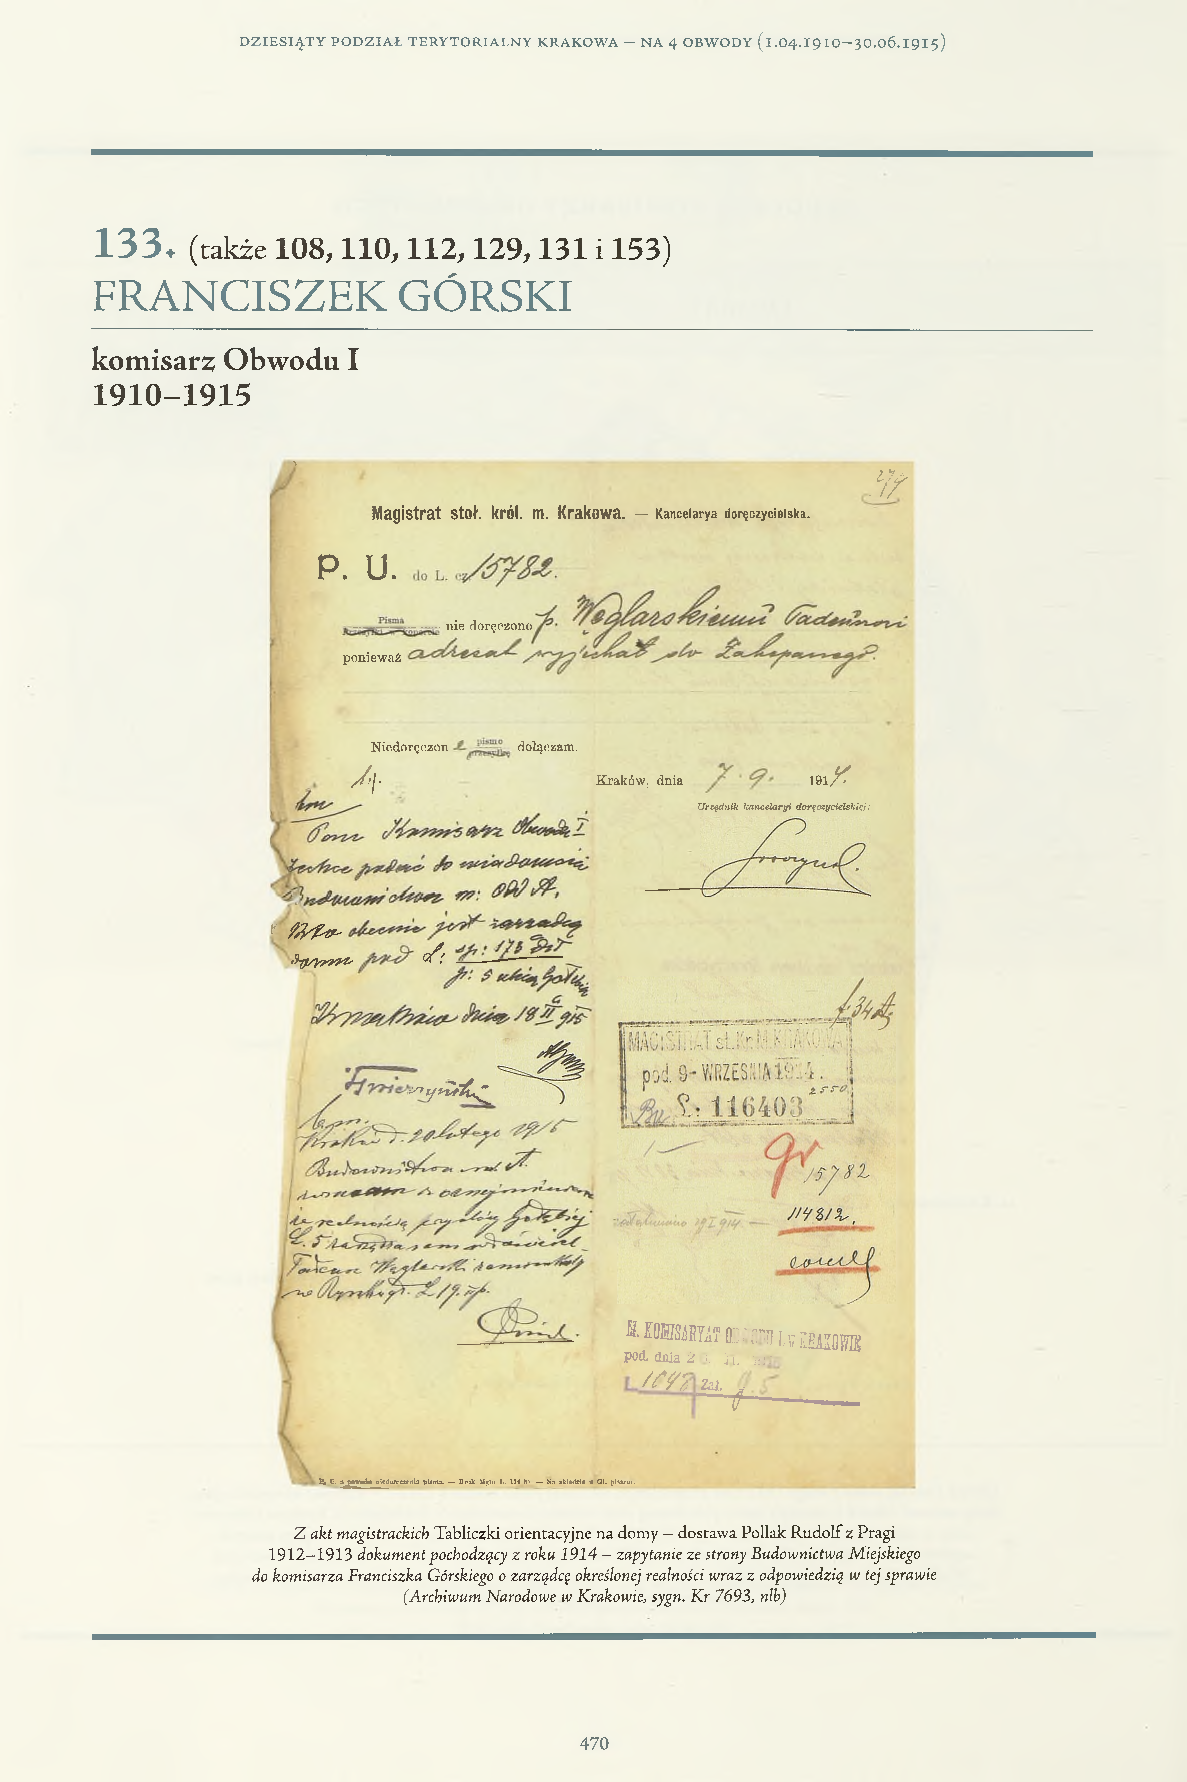 DZIESIĄTY PODZIAŁ TERYTORIALNY KRAKOWA – NA 4 OBWODY (1.04.1910–30.06.1915)
133. (także 108, 110, 112, 129, 131 i 153)
FRANCISZEK GÓRSKI
komisarz Obwodu I
1910–1915
Magistrat stoł. król. m. Krakowa. — Kancelarya doręczycielska.
P. U. do L. cz 15782.
Pisma nie doręczono p. Węglarskiemu Tadeuszowi
ponieważ adresat wyjechał do Zakopanego.
Niedoręczone pismo dołączam.
Kraków, dnia 7. 9. 1914.
Urzędnik kancelaryi doręczycielskiej:
Pan Komisarz Obwodu I
zechce podać do wiadomości
Budownictwa m: Odd A,
kto obecnie jest zarządcą
domu pod L: sp: 173 Dz I
gr: 5 ulica Gołębia
Kraków dnia 18 II 915
Kraków d. 20 lutego 1915
Budownictwu odd A.
że realnością przy ulicy Gołębiej
L. 5
Tadeusz Węglarski zamieszkały
w Rynku gł. L 19.
f. 34 A;
MAGISTRAT st. Kr. M. KRAKOWA
pod. 9- WRZEŚNIA 1914.
2550
Bu L: 116403
15782
114812.
M. KOMISARYAT OBWODU I. w KRAKOWIE
pod. dnia 2 II. 1915
L 1048 Zał. 9.5
P. U. z powodu niedoręczenia pisma. — Druk Mgtu L. 124 b) — Na składzie w Gł. pisarni.
Z akt magistrackich Tabliczki orientacyjne na domy – dostawa Pollak Rudolf z Pragi
1912–1913 dokument pochodzący z roku 1914 – zapytanie ze strony Budownictwa Miejskiego
do komisarza Franciszka Górskiego o zarządcę określonej realności wraz z odpowiedzią w tej sprawie
(Archiwum Narodowe w Krakowie, sygn. Kr 7693, nlb)
470